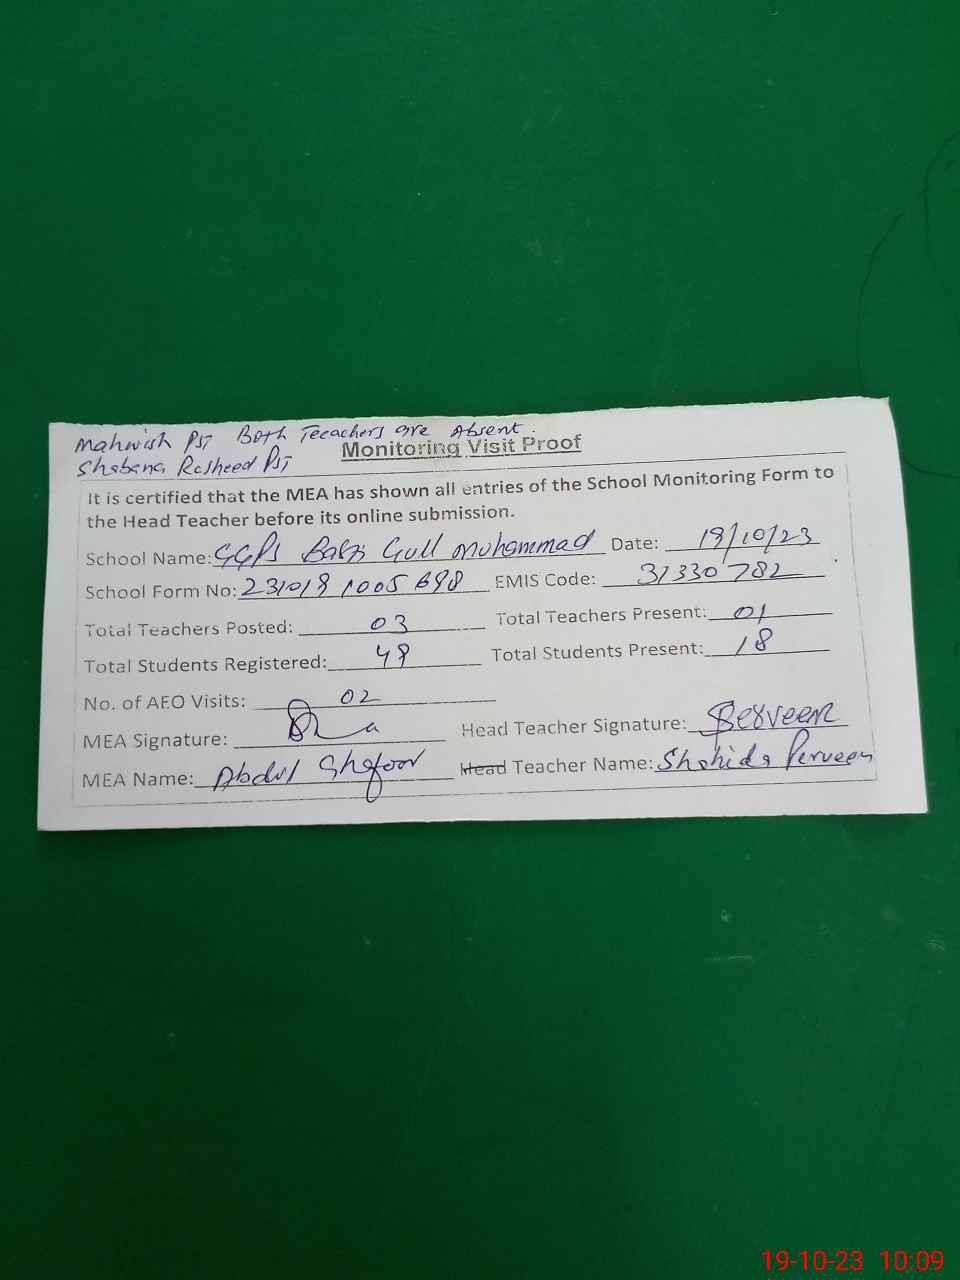 Mahwish PST Both Teeachers are Absent.
Shabana Rasheed PST
Monitoring Visit Proof
It is certified that the MEA has shown all entries of the School Monitoring Form to
the Head Teacher before its online submission.
School Name: GGPS Gull Muhammad Date: 19/10/23
School Form No: EMIS Code: 31330782
Total Teachers Posted: 03 Total Teachers Present: 01
Total Students Registered: 49 Total Students Present: 18
No. of AEO Visits: 02
MEA Signature: Head Teacher Signature: Perveen
MEA Name: Abdul Ghafoor Head Teacher Name: Shahida Perveen
19-10-23 10:09